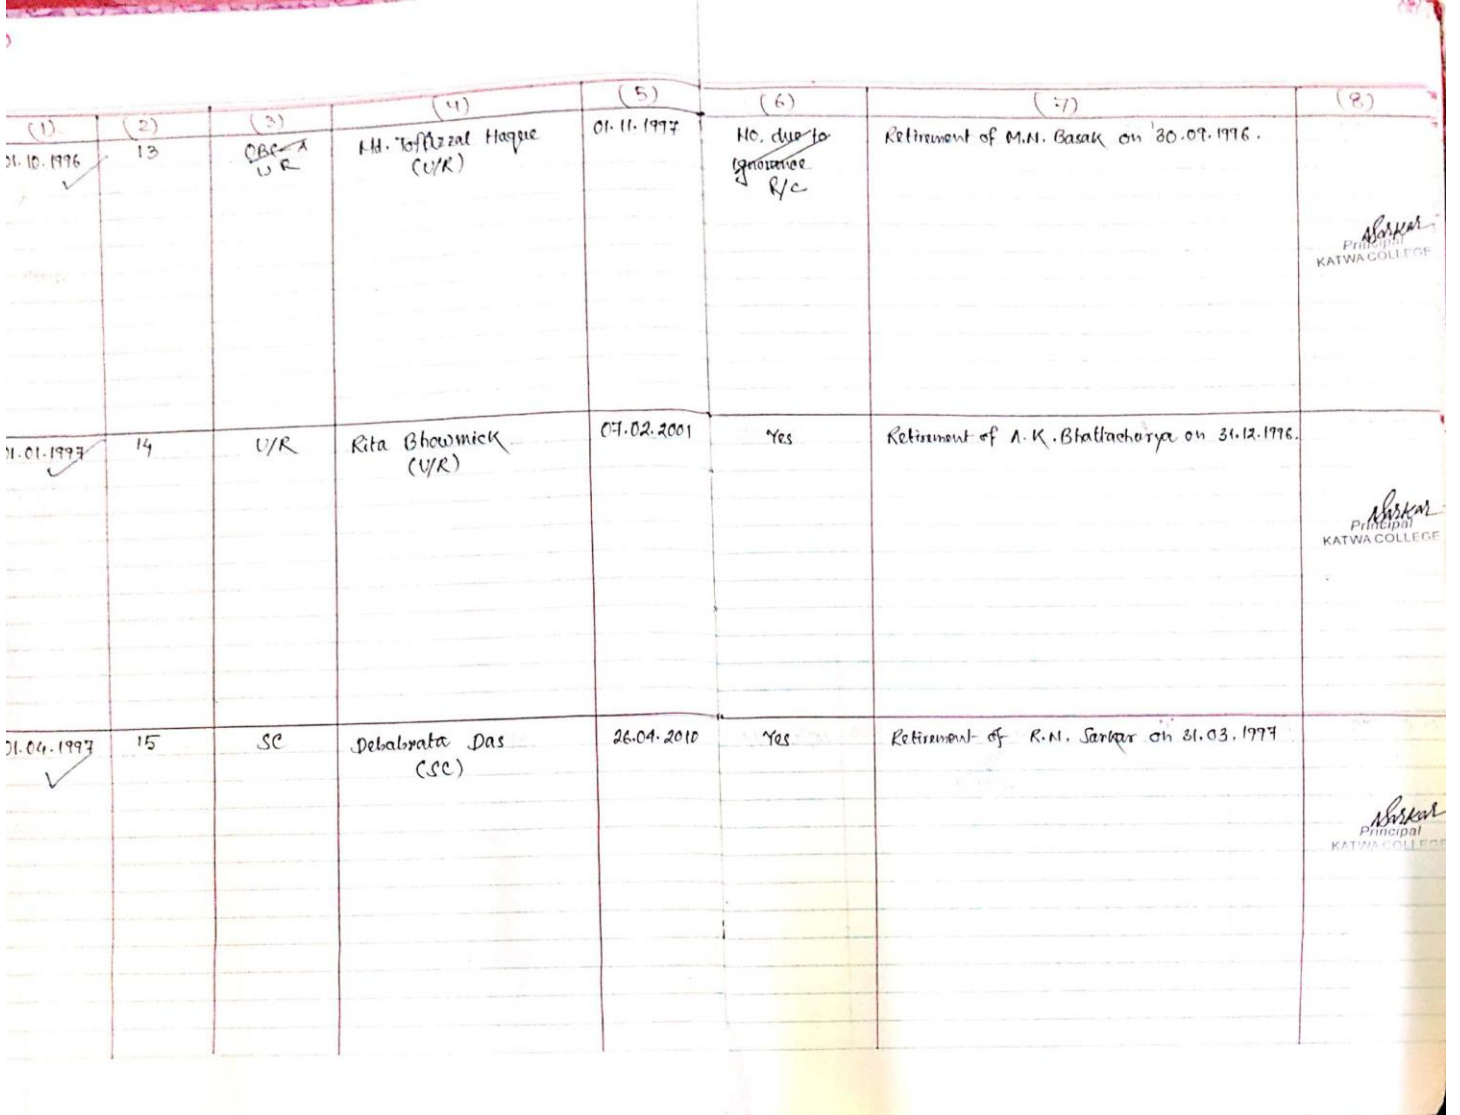 (1) (2) (3) (4) (5) (6) (7) (8)
01.10.1996 13 OBC-A Md. Toffizzal Haque 01.11.1997 No. due to Retirement of M.N. Basak on 30.09.1996.
UR (U/R) ignorance
R/C
Sarkar
Principal
KATWA COLLEGE
01.01.1997 14 U/R Rita Bhowmick 07.02.2001 Yes Retirement of A.K. Bhattacharya on 31.12.1996.
(U/R)
Sarkar
Principal
KATWA COLLEGE
01.04.1997 15 SC Debabrata Das 26.04.2010 Yes Retirement of R.N. Sarkar on 31.03.1997
(SC)
Sarkar
Principal
KATWA COLLEGE